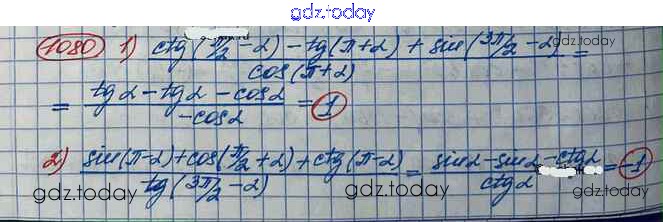 gdz.today
1080 1) (ctg(π/2 - α) - tg(π + α) + sin(3π/2 - α)) / cos(π + α) =
gdz.today
= (tgα - tgα - cosα) / -cosα = 1
2) (sin(π - α) + cos(π/2 + α) + ctg(π - α)) / tg(3π/2 - α) = (sinα - sinα - ctgα) / ctgα = -1
gdz.today gdz.today